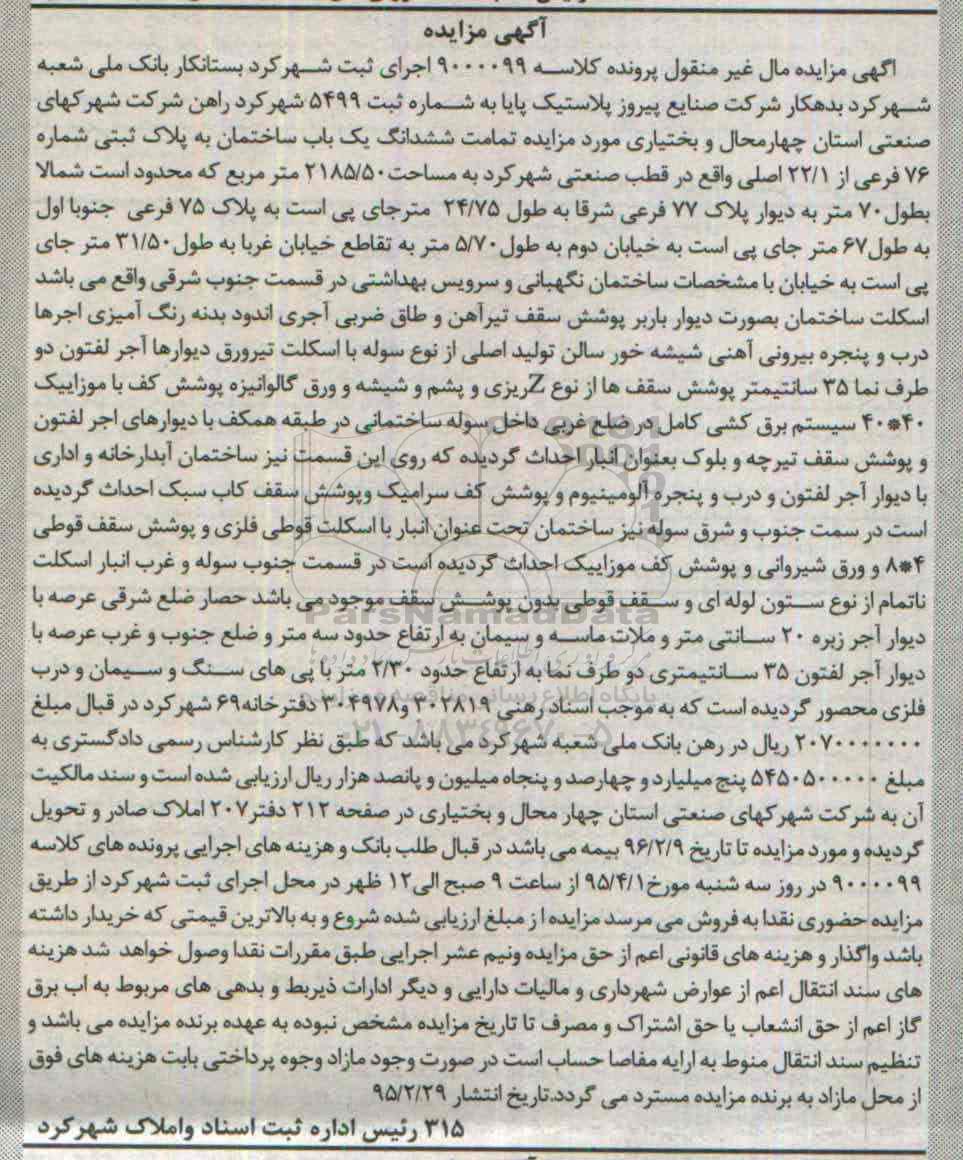 آگهی مزایده
اگهی مزایده مال غیر منقول پرونده کلاسه ۹۰۰۰۰۹۹ اجرای ثبت شهرکرد بستانکار بانک ملی شعبه
شهرکرد بدهکار شرکت صنایع پیروز پلاستیک پایا به شماره ثبت ۵۴۹۹ شهرکرد راهن شرکت شهرکهای
صنعتی استان چهارمحال و بختیاری مورد مزایده تمامت ششدانگ یک باب ساختمان به پلاک ثبتی شماره
۷۶ فرعی از ۲۲/۱ اصلی واقع در قطب صنعتی شهرکرد به مساحت۲۱۸۵/۵۰ متر مربع که محدود است شمالا
بطول۷۰ متر به دیوار پلاک ۷۷ فرعی شرقا به طول ۲۴/۷۵ مترجای پی است به پلاک ۷۵ فرعی جنوبا اول
به طول۶۷ متر جای پی است به خیابان دوم به طول۵/۷۰ متر به تقاطع خیابان غربا به طول۳۱/۵۰ متر جای
پی است به خیابان با مشخصات ساختمان نگهبانی و سرویس بهداشتی در قسمت جنوب شرقی واقع می باشد
اسکلت ساختمان بصورت دیوار باربر پوشش سقف تیرآهن و طاق ضربی آجری اندود بدنه رنگ آمیزی اجرها
درب و پنجره بیرونی آهنی شیشه خور سالن تولید اصلی از نوع سوله با اسکلت تیرورق دیوارها آجر لفتون دو
طرف نما ۳۵ سانتیمتر پوشش سقف ها از نوع Zریزی و پشم و شیشه و ورق گالوانیزه پوشش کف با موزاییک
۴۰*۴۰ سیستم برق کشی کامل در ضلع غربی داخل سوله ساختمانی در طبقه همکف با دیوارهای اجر لفتون
و پوشش سقف تیرچه و بلوک بعنوان انبار احداث گردیده که روی این قسمت نیز ساختمان آبدارخانه و اداری
با دیوار آجر لفتون و درب و پنجره آلومینیوم و پوشش کف سرامیک وپوشش سقف کاب سبک احداث گردیده
است در سمت جنوب و شرق سوله نیز ساختمان تحت عنوان انبار با اسکلت قوطی فلزی و پوشش سقف قوطی
۴*۸ و ورق شیروانی و پوشش کف موزاییک احداث گردیده است در قسمت جنوب سوله و غرب انبار اسکلت
ناتمام از نوع ستون لوله ای و سقف قوطی بدون پوشش سقف موجود می باشد حصار ضلع شرقی عرصه با
دیوار آجر زبره ۲۰ سانتی متر و ملات ماسه و سیمان به ارتفاع حدود سه متر و ضلع جنوب و غرب عرصه با
دیوار آجر لفتون ۳۵ سانتیمتری دو طرف نما به ارتفاع حدود ۲/۳۰ متر با پی های سنگ و سیمان و درب
فلزی محصور گردیده است که به موجب اسناد رهنی ۳۰۲۸۱۹ و۳۰۴۹۷۸ دفترخانه۶۹ شهرکرد در قبال مبلغ
۲۰۷۰۰۰۰۰۰۰ ریال در رهن بانک ملی شعبه شهرکرد می باشد که طبق نظر کارشناس رسمی دادگستری به
مبلغ ۵۴۵۰۵۰۰۰۰۰ پنج میلیارد و چهارصد و پنجاه میلیون و پانصد هزار ریال ارزیابی شده است و سند مالکیت
آن به شرکت شهرکهای صنعتی استان چهار محال و بختیاری در صفحه ۲۱۲ دفتر۲۰۷ املاک صادر و تحویل
گردیده و مورد مزایده تا تاریخ ۹۶/۲/۹ بیمه می باشد در قبال طلب بانک و هزینه های اجرایی پرونده های کلاسه
۹۰۰۰۰۹۹ در روز سه شنبه مورخ۹۵/۴/۱ از ساعت ۹ صبح الی۱۲ ظهر در محل اجرای ثبت شهرکرد از طریق
مزایده حضوری نقدا به فروش می مرسد مزایده از مبلغ ارزیابی شده شروع و به بالاترین قیمتی که خریدار داشته
باشد واگذار و هزینه های قانونی اعم از حق مزایده ونیم عشر اجرایی طبق مقررات نقدا وصول خواهد شد هزینه
های سند انتقال اعم از عوارض شهرداری و مالیات دارایی و دیگر ادارات ذیربط و بدهی های مربوط به اب برق
گاز اعم از حق انشعاب یا حق اشتراک و مصرف تا تاریخ مزایده مشخص نبوده به عهده برنده مزایده می باشد و
تنظیم سند انتقال منوط به ارایه مفاصا حساب است در صورت وجود مازاد وجوه پرداختی بابت هزینه های فوق
از محل مازاد به برنده مزایده مسترد می گردد.تاریخ انتشار ۹۵/۲/۲۹
۳۱۵ رئیس اداره ثبت اسناد واملاک شهرکرد
ParsNamadData
پایگاه اطلاع رسانی مناقصه و مزایده
۰۲۱-۸۸۳۴۹۶۷۰-۵